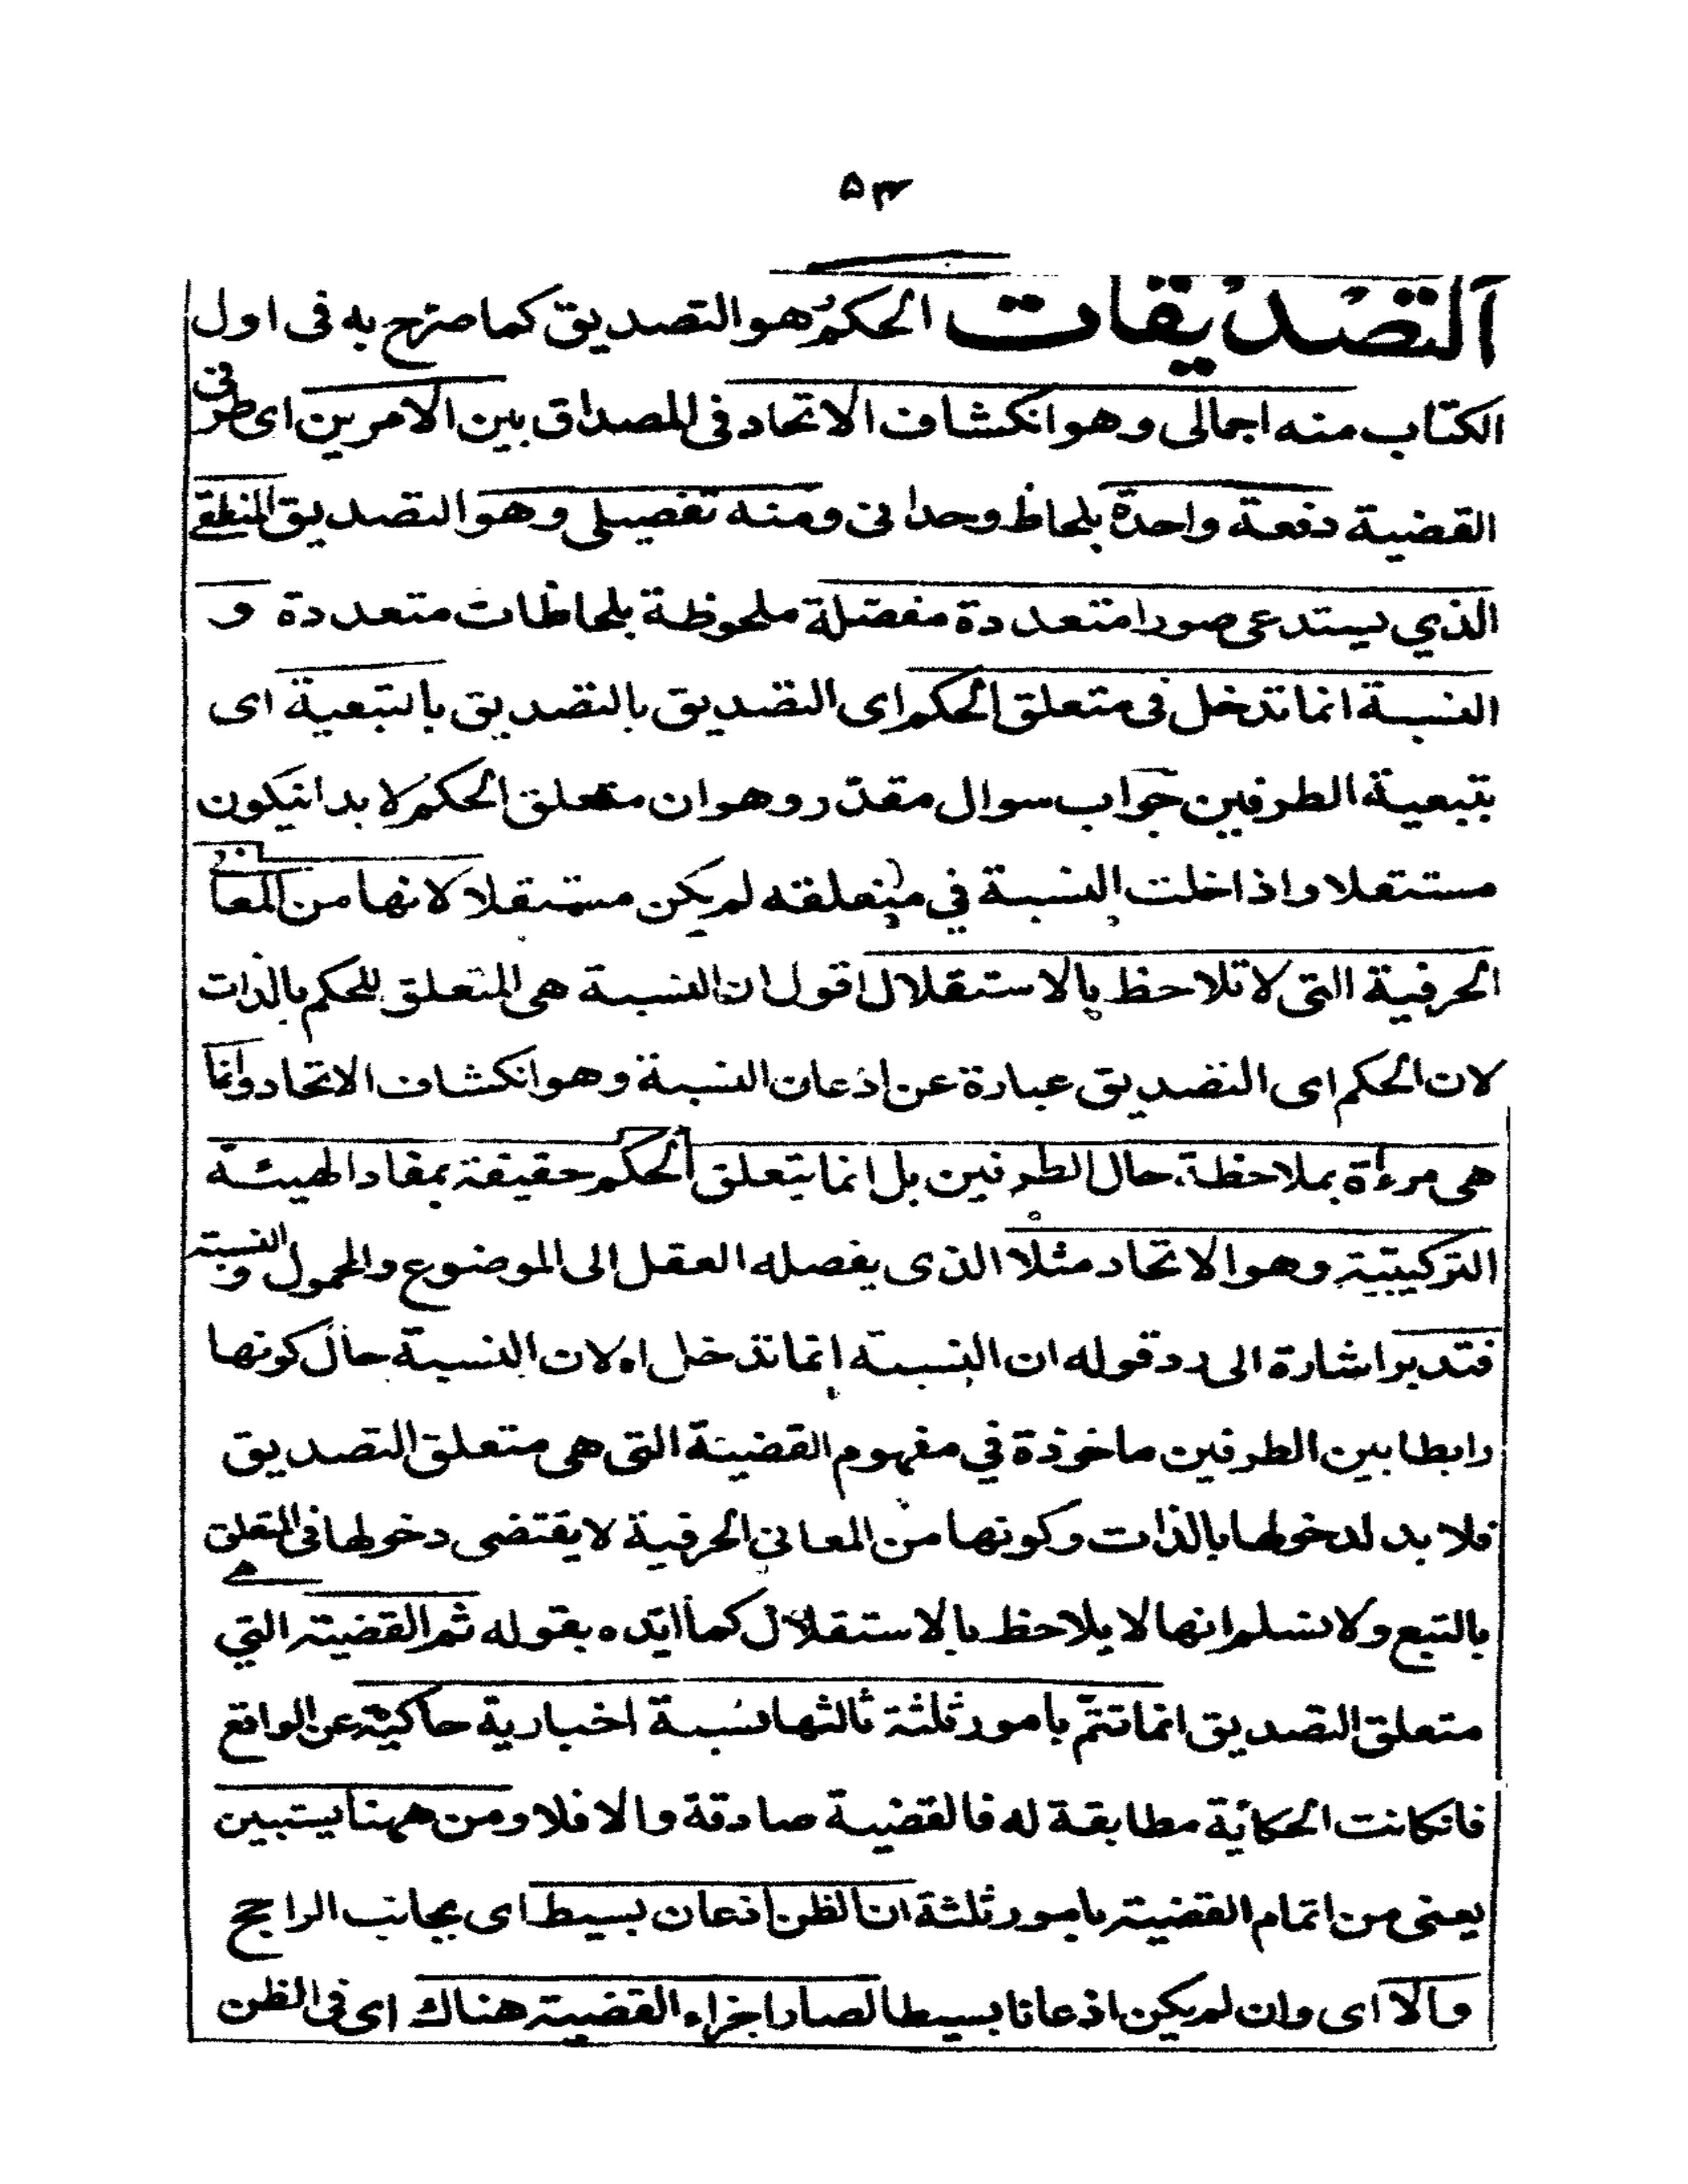 ۵۳
التصديقات الحكم هو التصديق كما صرّح به فى اول
الكتاب منه اجمالى وهو انكشاف الاتحاد فى المصداق بين الامرين اى طرفى
القضية دفعة واحدة بلحاظ وحدانى ومنه تفصيلى وهو التصديق المنطقے
الذي يستدعى صورا متعددة مفصّلة ملحوظة بلحاظات متعددة و
النسبة انما تدخل فى متعلق الحكم اى التصديق بالتصديق بالتبعية اى
بتبعية الطرفين جواب سوال مقدّر وهو ان متعلق الحكم لا بد انيكون
مستقلا واذا خلت النسبة في متعلقه لم يكن مستقلا لانها من المعانى
الحرفية التى لا تلاحظ بالاستقلال اقول ان النسبة هى المتعلق للحكم بالذات
لان الحكم اى التصديق عبارة عن اذعان النسبة وهو انكشاف الاتحاد وانما
هى مرءاة بملاحظة حال الطرفين بل انما يتعلق الحكم حقيقة بمفاد الهيئة
التركيبيّة وهو الاتحاد مثلا الذى يفصله العقل الى الموضوع والمحمول والنسبة
فتدبر اشارة الى رد قوله ان النسبة انما تدخل اه لان النسبة حال كونها
رابطا بين الطرفين ماخوذة في مفهوم القضيّة التى هى متعلق التصديق
فلا بد لدخولها بالذات وكونها من المعانى الحرفية لا يقتضى دخولها فى المتعلق
بالتبع ولا نسلم انها لا يلاحظ بالاستقلال كما ايّده بقوله ثم القضيّة التي هے
متعلق التصديق انما تتمّ بامور ثلثة ثالثها نسبة اخبارية حاكيّة عن الواقع
فانكانت الحكايّة مطابقة له فالقضية صادقة والا فلا ومن ههنا يستبين
يعنى من اتمام القضيّة بامور ثلثة ان الظن اذعان بسيط اى بجانب الراجح
والا اى وان لم يكن اذعانا بسيطا لصار اجزاء القضيّة هناك اى فى الظن